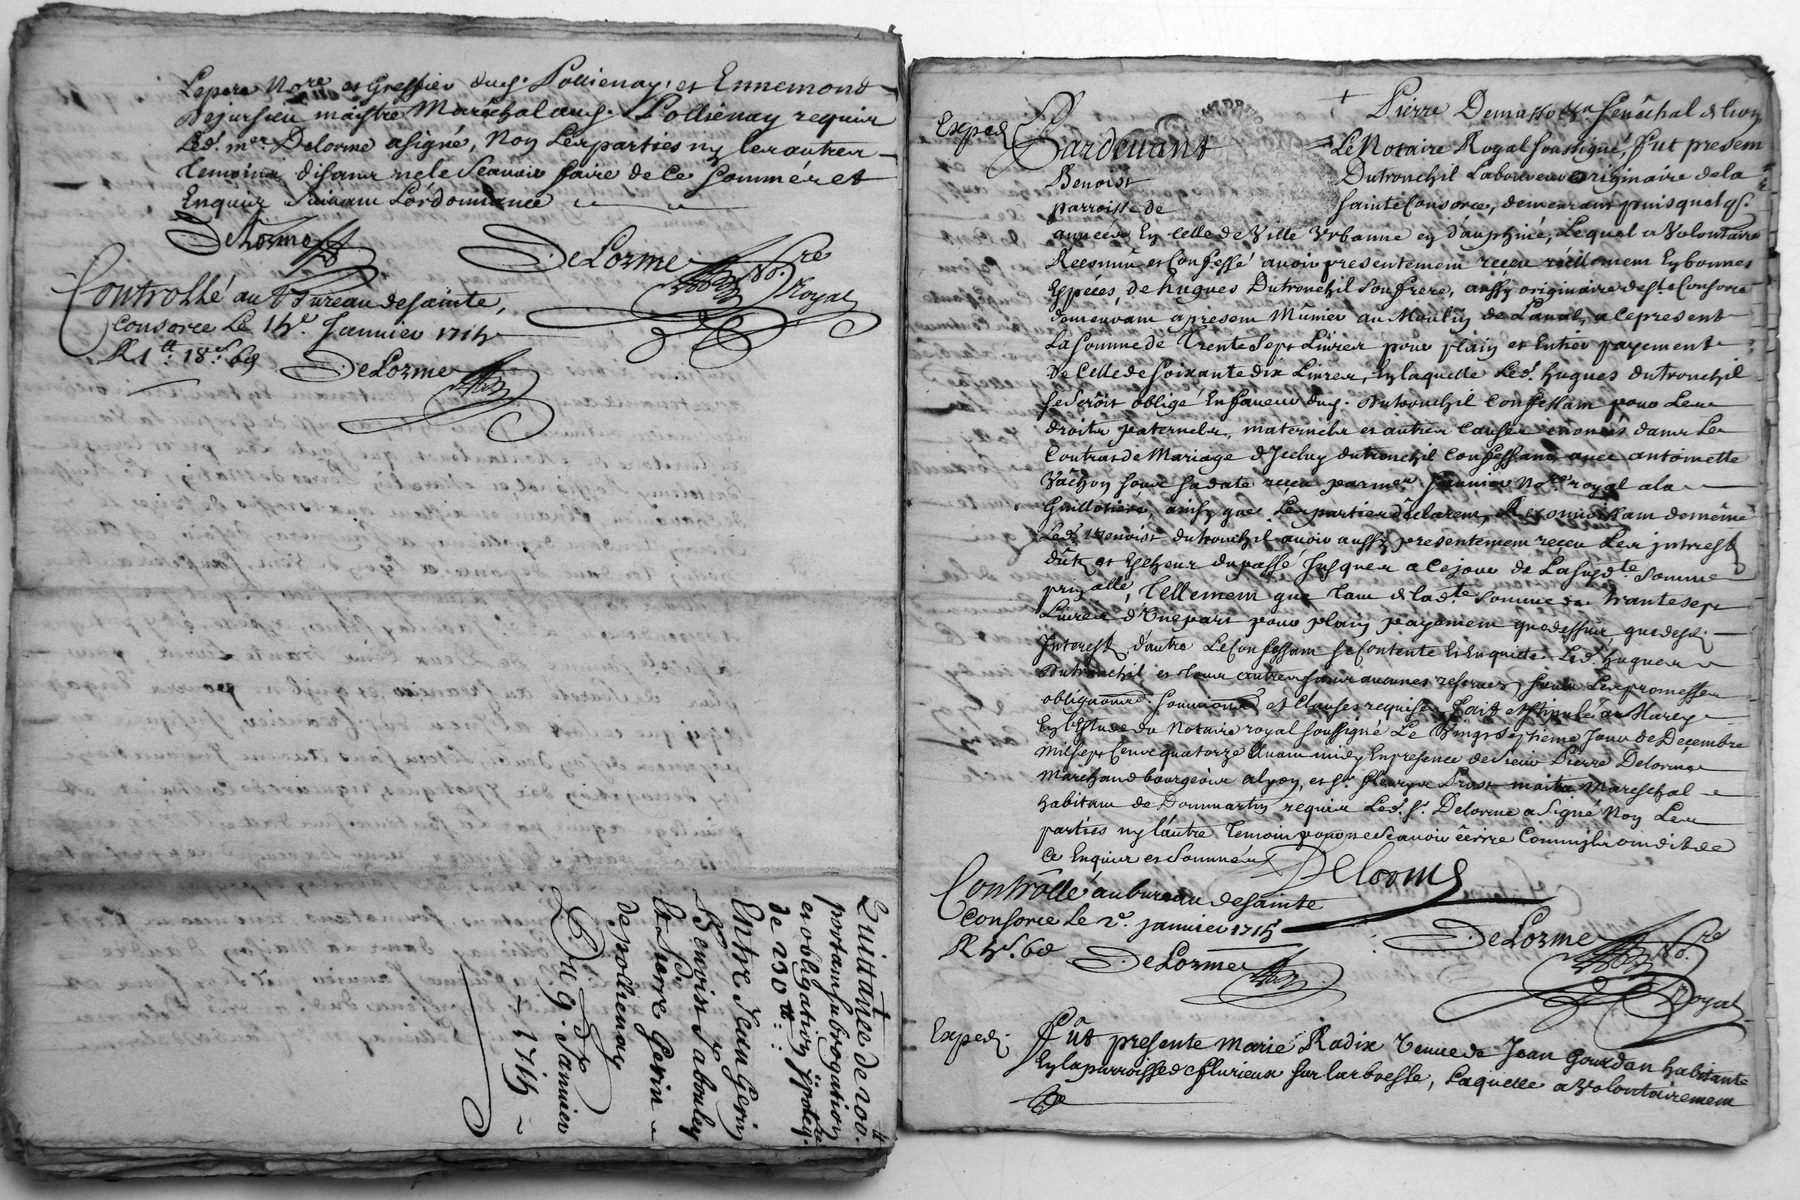 Lepere No.re et Greffier dud. Pollienay, et Ennemond
Dejursieu maistre Maréchal aud. Pollienay requis
Led. m.re Delorme a signé, Non Les parties ny les autres
temoins disant ne le Scavoir faire de Ce Sommés et
Enquis Suivant L'ordonnance
DeLorme
DeLorme No.re royal
Controllé au Bureau de sainte
Consorce Le 14.e Janvier 1715
R 1.lt 18.s 6d
DeLorme
Quittance de 200.lt
portant subrogation
et obligation ypoteq.re
de 230.lt :
Entre Jean Gerin
Benoist Jabouley
et Pierre Gerin
de pollienay
Du 9. Janvier
1715
Pierre Demasso &.a Senêchal de Lyon
Exped
Pardevant Le Notaire Royal soussigné, fut present
Benoist Dutronchil Laboureur originaire de la
parroisse de Sainte Consorce, demeurant puis quelq.s
années En Celle de Ville Vrbanne en d'auphiné, Lequel a Volontaire
Reconnû et Confessé avoir presentement reçeu réellement En bonnes
Espéces, de hugues Dutronchil Son frere, aussy originaire de s.te Consorce
demeurant apresent Munier au Moulin de Laval, a Ce present
La Somme de Trente Sept Livres pour plain et Entier payement
De Celle de Soixante dix Livres, En laquelle Led. hugues dutronchil
se seroit obligé En faveur dud. Dutronchil Confessant pour Les
droits paternels, maternels et autres Causes enoncés dans Le
Contrat de Mariage d'Jceluy dutronchil Confessant avec antoinette
Vâchon sous sa date reçeu par m.re Janvier No.re royal a la
Guillotiere, ainsy que Les parties déclarent, Reconnoissant de même
Led. Benoist dutronchil avoir aussy presentement reçeu Les jntrests
dûts et Escheus du passé Jusques a Ce jour de La susd.te Somme
prinçalle, Tellement que tant de lad.te Somme de trante sept
Livres d'Vne part pour plain payement que dessus que desd.
Jnterests d'autre Le Confessant se Contente Et En quitte Led. hugues
Dutronchil et tous autres sans aucunes reserves, sous Les promesses
obligaõns soumissions et Clauses requises, Fait et stipulé a Marcy
En L'Estude du Notaire royal soussigné Le Vingt Septiême Jour de Decembre
mil sept Cent quatorze Avant midy En presence de Sieur Pierre Delorme
Marchand bourgeois a lyon, et s.r fleury Prost maitre Mareschal
habitant de Dommartin requis Led. S.r Delorme a Signé Non Les
parties ny l'autre temoin pour ne Scavoir êcrire
Ce Enquis et Sommés
Delorme
Controllé au bureau de Sainte
Consorce Le 2.e janvier 1715
R 5.s 6d
DeLorme
DeLorme No.re Royal
Exped.
Fût presente Marie Radix veuve de Jean Gourdan habitante
En la parroisse de flurieux sur larbresle, Laquelle a Volontairement